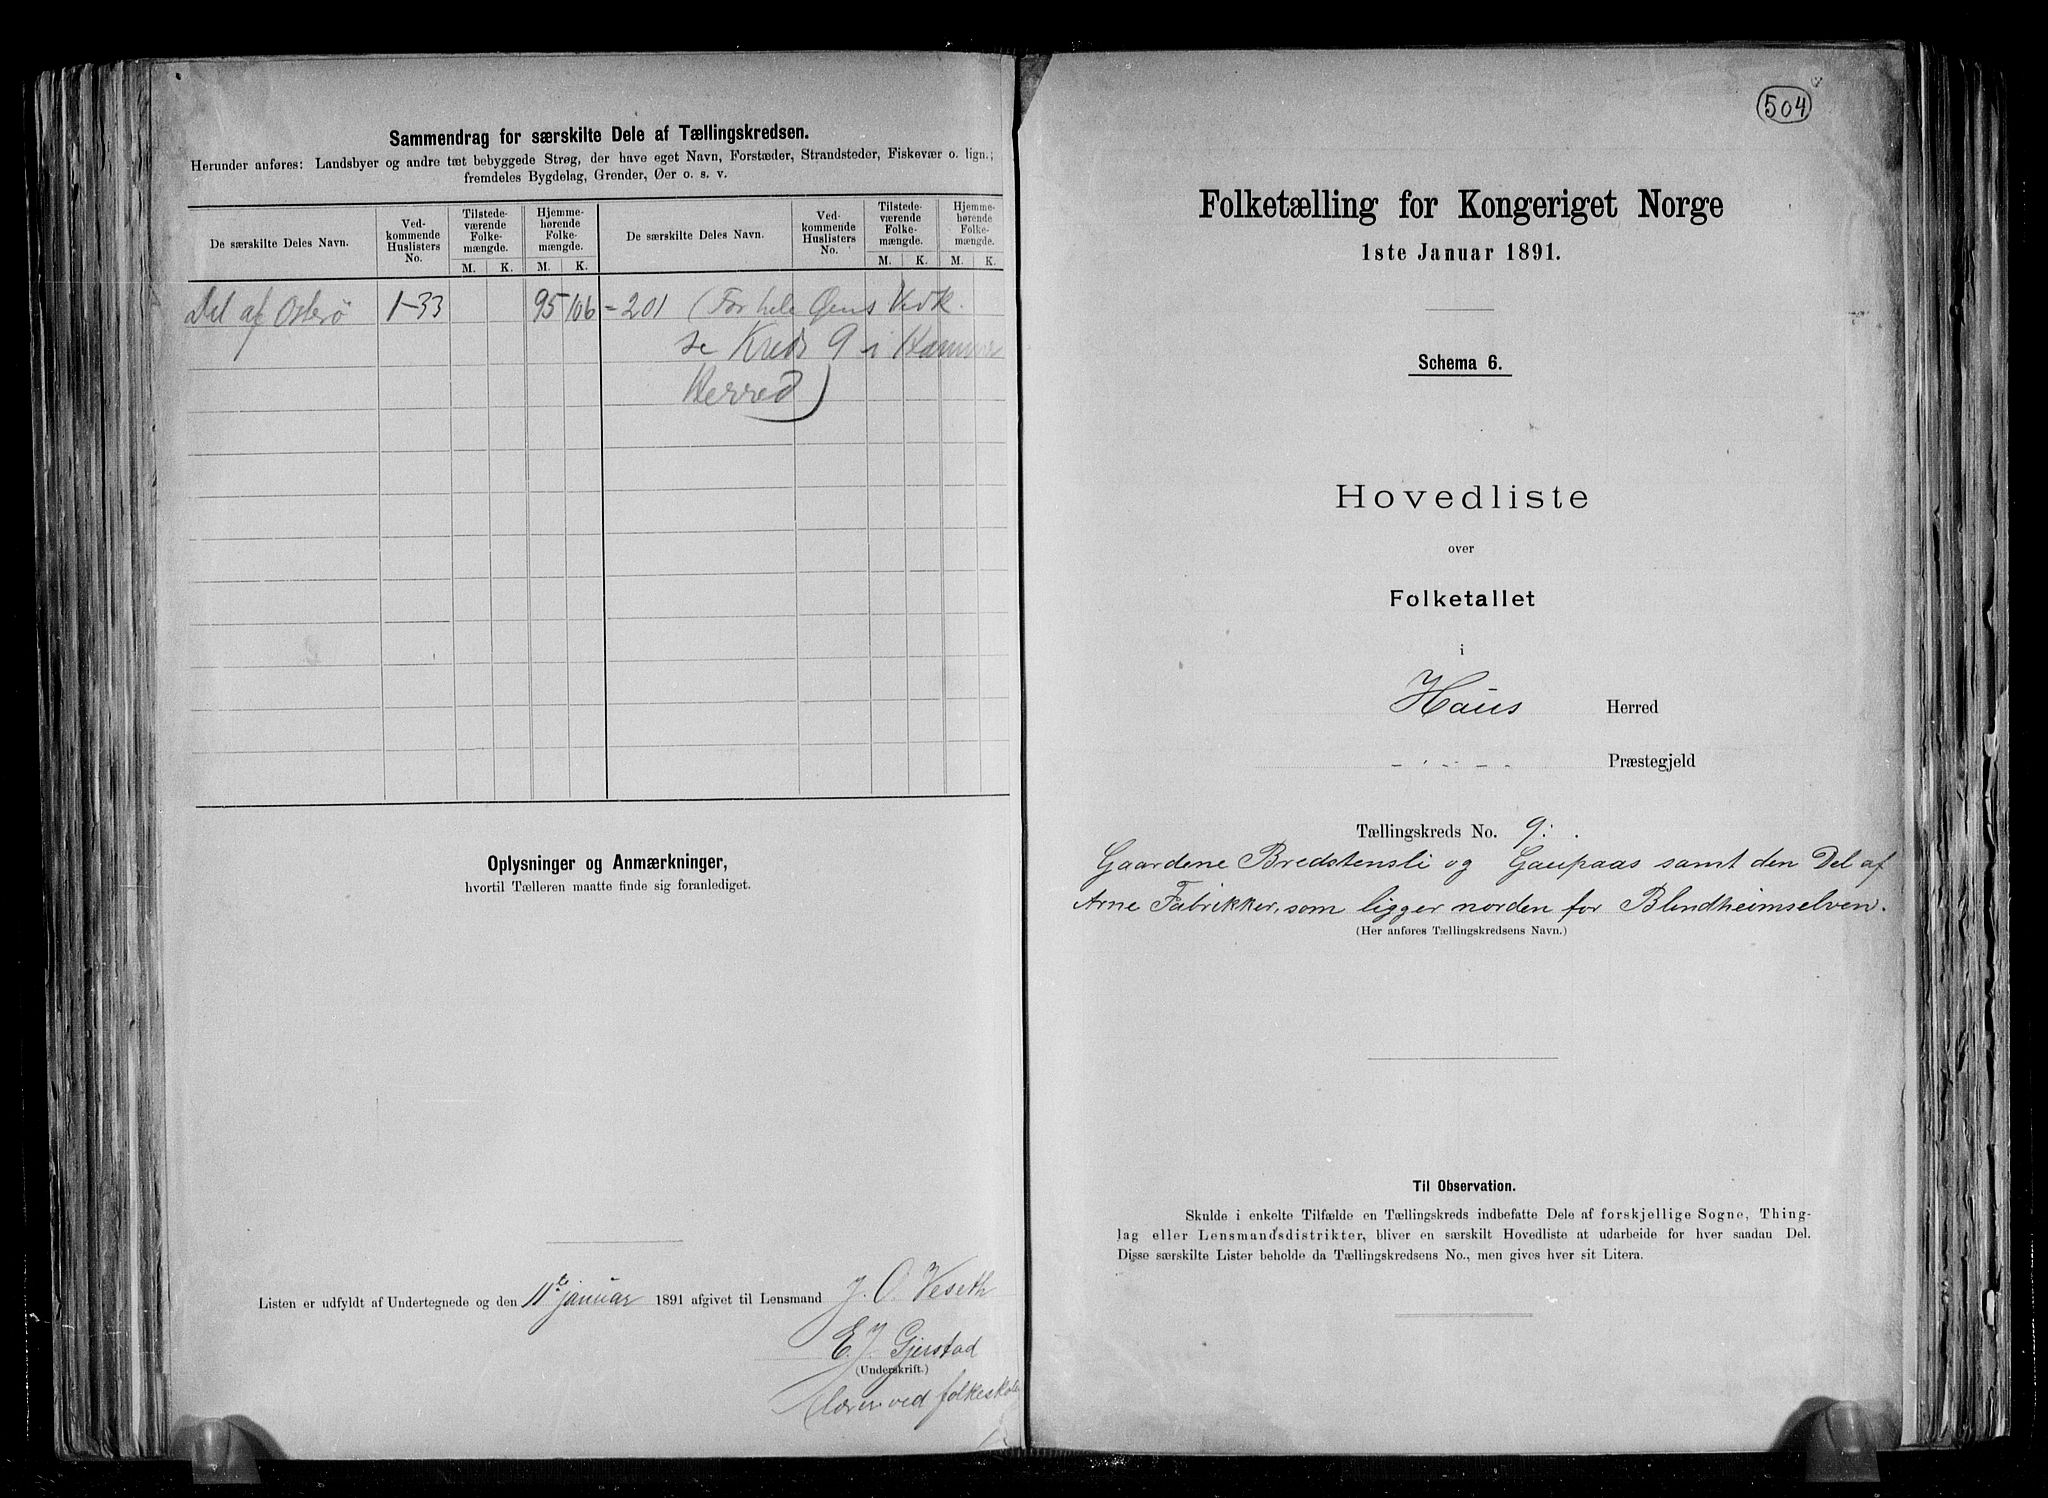 Sammendrag for særskilte Dele af Tællingskredsen.
Herunder anføres: Landsbyer og andre tæt bebyggede Strøg, der have eget Navn, Forstæder, Strandsteder, Fiskevær o. lign.;
fremdeles Bygdelag, Grender, Øer o. s. v.
De særskilte Deles Navn.
Ved-
kommende
Huslisters
No.
Tilstede-
værende
Folke-
mængde.
M. K.
Hjemme-
hørende
Folke-
mængde.
M. K.
De særskilte Deles Navn.
Ved-
kommende
Huslisters
No.
Tilstede-
værende
Folke-
mængde.
M. K.
Hjemme-
hørende
Folke-
mængde.
M. K.
Del af Osterö 1-33 95 106 = 201 (For hele Øens Vedk.
se Kreds 9 i Hammer
Herred)
Oplysninger og Anmærkninger,
hvortil Tælleren maatte finde sig foranlediget.
Listen er udfyldt af Undertegnede og den 11te januar 1891 afgivet til Lensmand J. O. Veseth
E. J. Gjerstad
(Underskrift.)
lærer ved folkeskolen
504
Folketælling for Kongeriget Norge
1ste Januar 1891.
Schema 6.
Hovedliste
over
Folketallet
i
Haus Herred
Præstegjeld
Tællingskreds No. 9.
Gaardene Bredstensli og Gaupaas samt den Del af
Arne Fabrikker, som ligger norden for Blindheimselven.
(Her anføres Tællingskredsens Navn.)
Til Observation.
Skulde i enkelte Tilfælde en Tællingskreds indbefatte Dele af forskjellige Sogne, Thing-
lag eller Lensmandsdistrikter, bliver en særskilt Hovedliste at udarbeide for hver saadan Del.
Disse særskilte Lister beholde da Tællingskredsens No., men gives hver sit Litera.